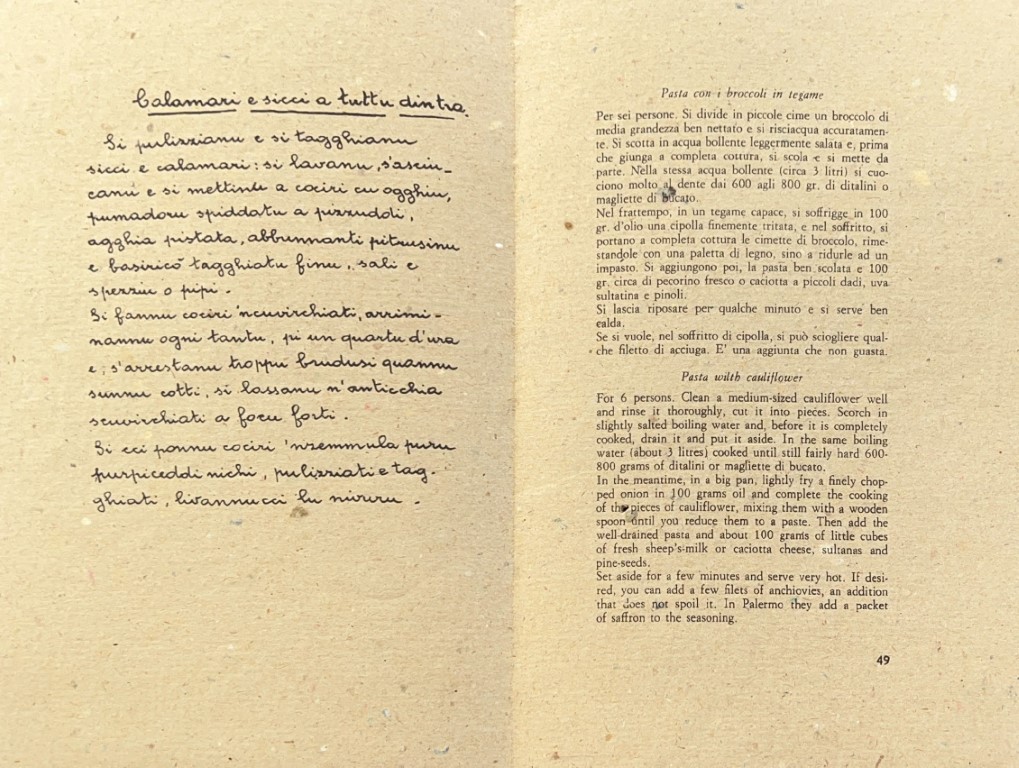 Calamari e sicci a tuttu dintra.
Si pulizzianu e si tagghianu
sicci e calamari: si lavanu, s'asciu-
canu e si mettinu a cociri cu ogghiu,
pumadoru spiddatu a pizzuddi,
agghia pistata, abbunnanti pitrusinu
e basiricò tagghiatu finu, sali e
spezziu o pipi.
Si fannu cociri 'ncuvirchiati, arrimi-
nannu ogni tantu, pi un quartu d'ura
e, s'arrestanu troppu brudusi quannu
sunnu cotti, si lassanu n'anticchia
scuvirchiati a focu forti.
Si cci ponnu cociri 'nzemmula puru
purpiceddi nichi, pulizziati e tag-
ghiati, livannucci lu nivuru.
Pasta con i broccoli in tegame
Per sei persone. Si divide in piccole cime un broccolo di
media grandezza ben nettato e si risciacqua accuratamen-
te. Si scotta in acqua bollente leggermente salata e, prima
che giunga a completa cottura, si scola e si mette da
parte. Nella stessa acqua bollente (circa 3 litri) si cuo-
ciono molto al dente dai 600 agli 800 gr. di ditalini o
magliette di bucato.
Nel frattempo, in un tegame capace, si soffrigge in 100
gr. d'olio una cipolla finemente tritata, e nel soffritto, si
portano a completa cottura le cimette di broccolo, rime-
standole con una paletta di legno, sino a ridurle ad un
impasto. Si aggiungono poi, la pasta ben scolata e 100
gr. circa di pecorino fresco o caciotta a piccoli dadi, uva
sultatina e pinoli.
Si lascia riposare per qualche minuto e si serve ben
calda.
Se si vuole, nel soffritto di cipolla, si può sciogliere qual-
che filetto di acciuga. E' una aggiunta che non guasta.
Pasta wilth cauliflower
For 6 persons. Clean a medium-sized cauliflower well
and rinse it thoroughly, cut it into pieces. Scorch in
slightly salted boiling water and, before it is completely
cooked, drain it and put it aside. In the same boiling
water (about 3 litres) cooked until still fairly hard 600-
800 grams of ditalini or magliette di bucato.
In the meantime, in a big pan, lightly fry a finely chop-
ped onion in 100 grams oil and complete the cooking
of the pieces of cauliflower, mixing them with a wooden
spoon until you reduce them to a paste. Then add the
well-drained pasta and about 100 grams of little cubes
of fresh sheep's-milk or caciotta cheese, sultanas and
pine-seeds.
Set aside for a few minutes and serve very hot. If desi-
red, you can add a few filets of anchiovies, an addition
that does not spoil it. In Palermo they add a packet
of saffron to the seasoning.
49